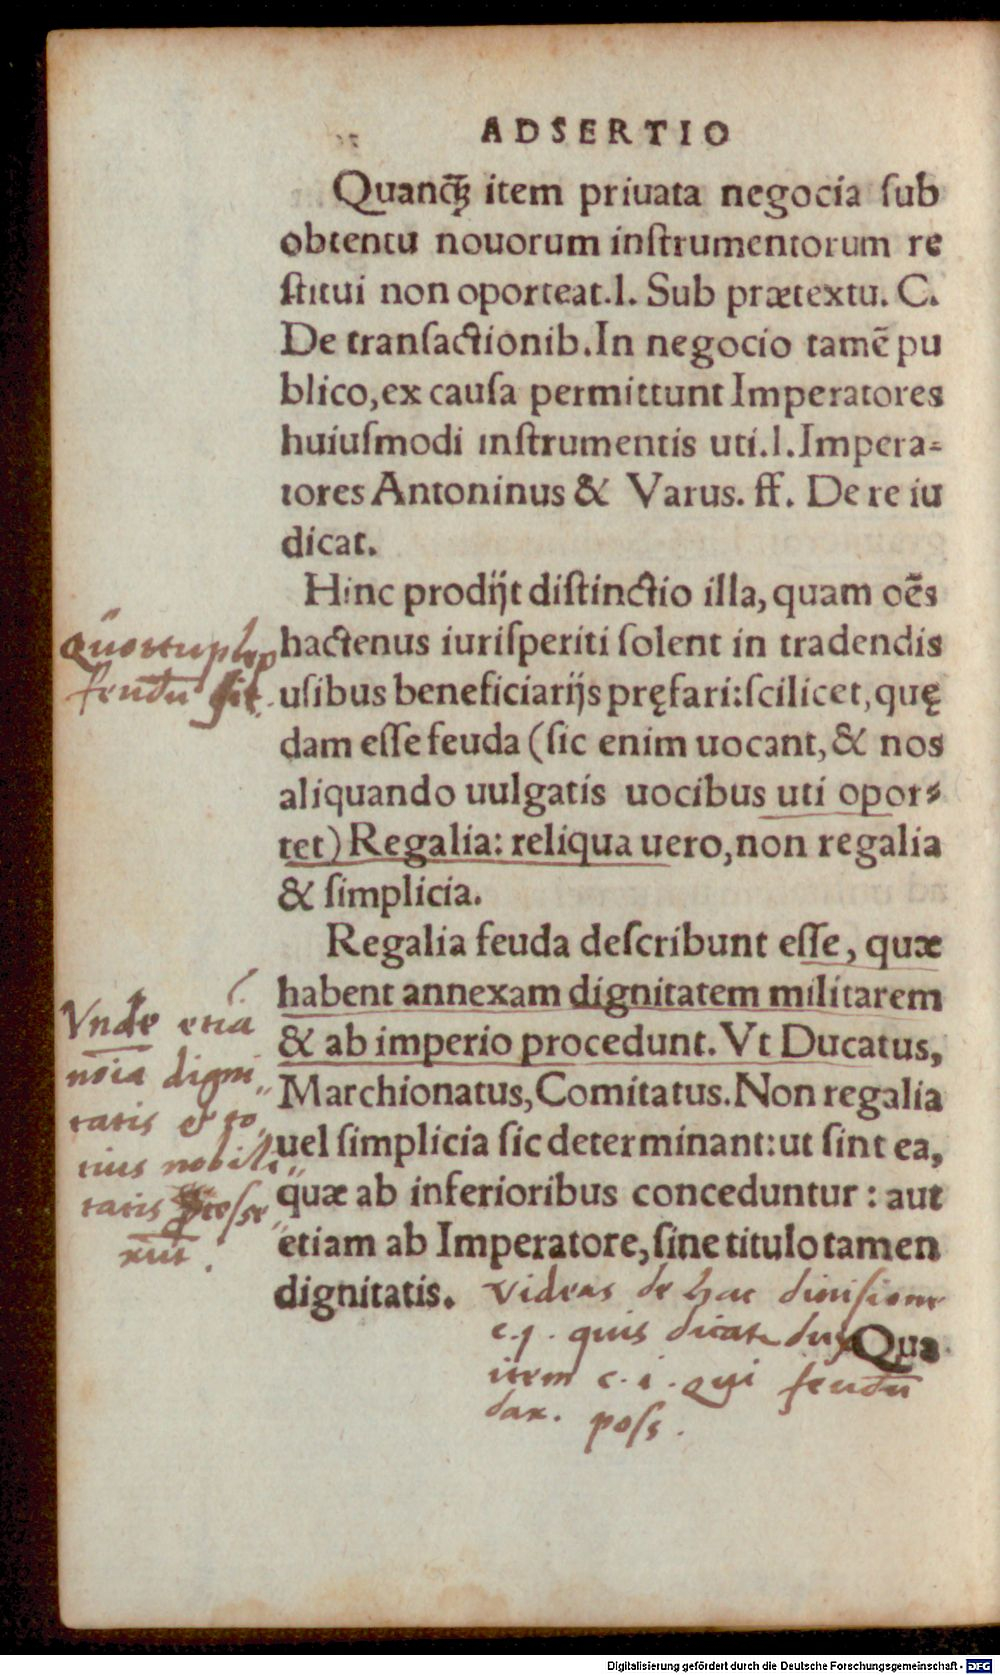 ADSERTIO
Quancq̃ꝫ item priuata negocia ſub
obtentu nouorum inſtrumentorum re
ſtitui non oporteat.l. Sub prætextu. C.
De tranſactionib. In negocio tamẽ pu
blico, ex cauſa permittunt Imperatores
huiuſmodi inſtrumentis uti.l. Impera-
tores Antoninus & Varus. ff. De re iu
dicat.
Hinc prodijt diſtinctio illa, quam oẽs
hactenus iuriſperiti ſolent in tradendis
uſibus beneficiarijs pręfari: ſcilicet, quę
dam eſſe feuda (ſic enim uocant, & nos
aliquando uulgatis uocibus uti opor-
tet) Regalia: reliqua uero, non regalia
& ſimplicia.
Regalia feuda deſcribunt eſſe, quæ
habent annexam dignitatem militarem
& ab imperio procedunt. Vt Ducatus,
Marchionatus, Comitatus. Non regalia
uel ſimplicia ſic determinant: ut ſint ea,
quæ ab inferioribus conceduntur: aut
etiam ab Imperatore, ſine titulo tamen
dignitatis.
Qua
Quotuplex
feudū ſit.
Vnde etiã
noĩa digni
tatis et to
tius nobili
tatis
Videas de hac diuiſione
c.j. quis dicat dux
item c. i. qui feudũ
dar. poſſ.
Digitalisierung gefördert durch die Deutsche Forschungsgemeinschaft - DFG